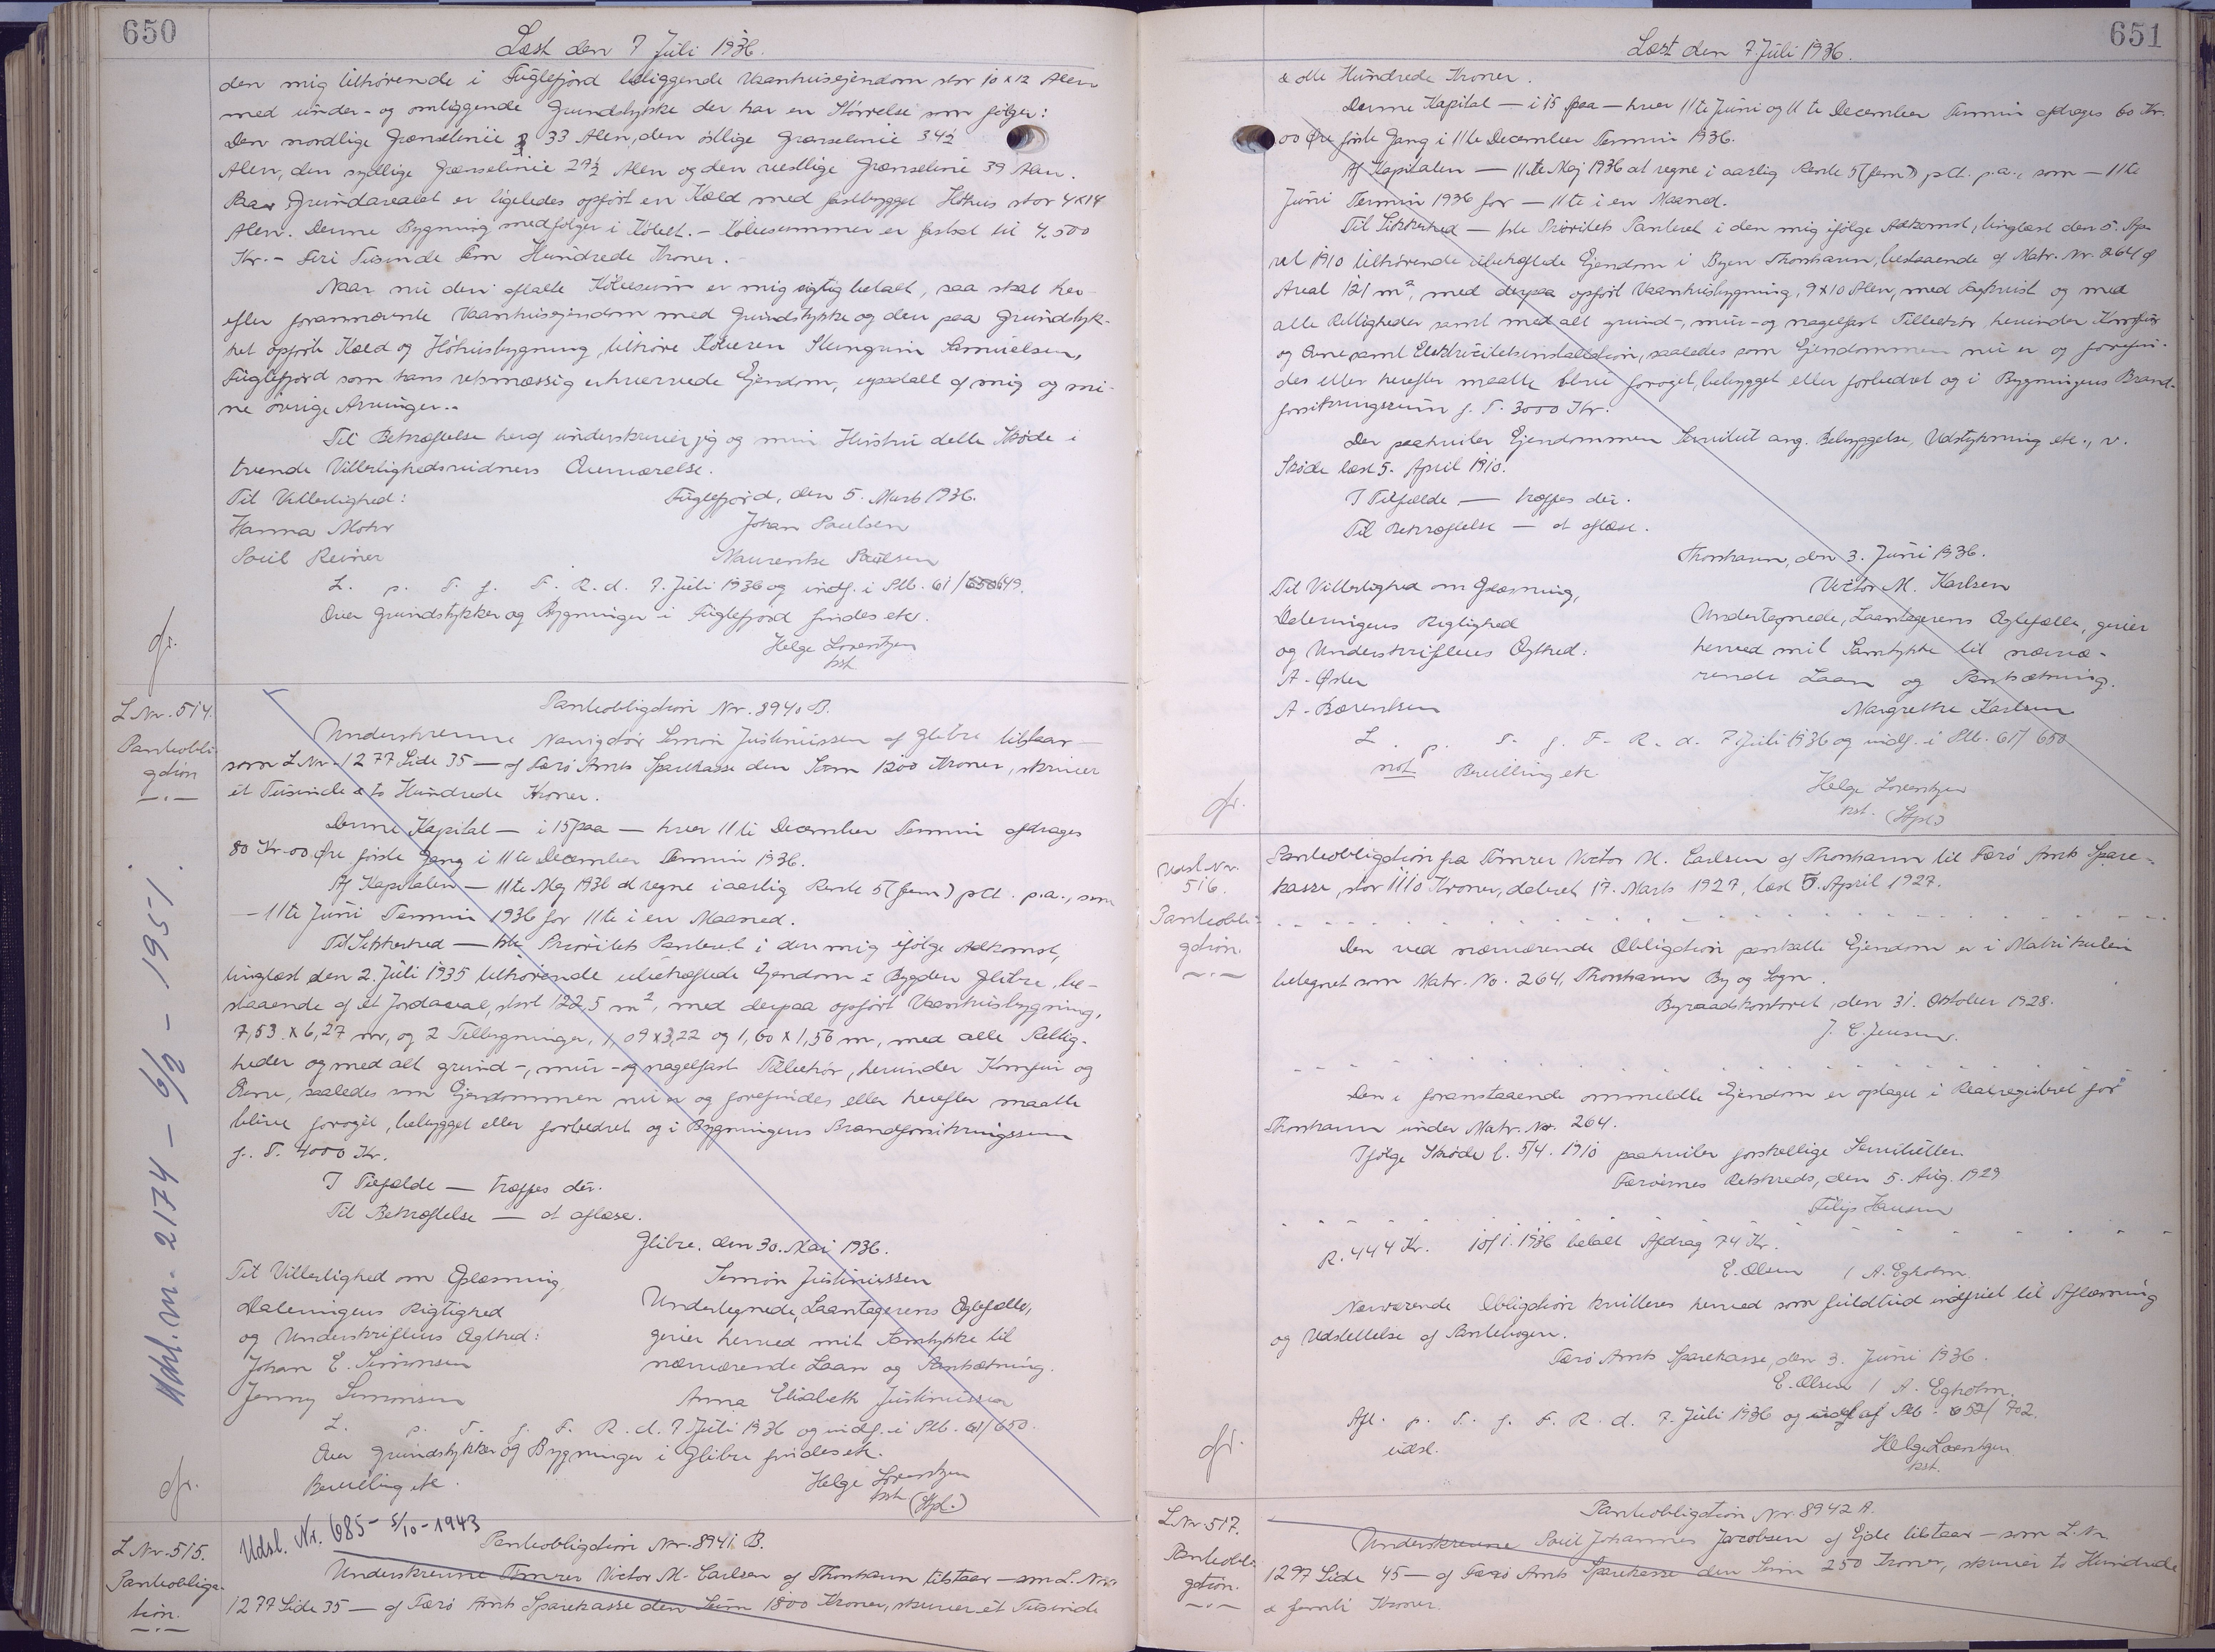 650
Læst den 7 Juli 1936.
den mig tilhørende i Fuglefjord beliggende Vaanhusejendom stor 10 x 12 Alen
med under- og omliggende Grundstykke der har en Størrelse som følger:
Den nordlige Grænselinie 33 Alen, den östlige Grænselinie 34½
Alen, den sydlige Grænselinie 29½ Alen og den vestlige Grænselinie 39 Alen.
Paa Grundarealet er ligeledes opført en Kæld med fastbygget Höhus stor 4x14
Alen. Denne Bygning medfølger i Köbet. - Köbesummen er fastsat til 4.500
Kr. - Fire Tusinde Fem Hundrede Kroner. -
Naar nu den aftalte Köbesum er mig rigtig betalt, saa skal her-
efter forannævnte Vaanhusejendom med Grundstykke og den paa Grundstyk-
ket opførte Kæld og Höhusbygning, tilhøre Køberen Steingrim Samuelsen,
Fuglefjord som hans retsmæssig erhvervede Ejendom, upaatalt af mig og mi-
ne övrige Arvinger. -
Til Bekræftelse heraf underskriver jeg og min Hustru dette Skøde i
tvende Vitterlighedsvidners Overværelse.
Til Vitterlighed: Fuglefjord, den 5. Marts 1936.
Hanna Mohr Johan Poulsen
Poul Reiner Maurentse Poulsen
L. p. T. f. F. R. d. 7. Juli 1936 og indf. i Skb. 61/650 649.
Over Grundstykker og Bygninger i Fuglefjord findes etc.
Helge Lorentzen
kst.
L Nr. 514.
Pantobli-
gation
Pantobligation Nr. 8940 B.
Underskrevne Navigatör Simon Justinussen af Glibre tilstaar —
som L Nr. 1277 Side 35 — af Færö Amts Sparekasse den Sum 1200 Kroner, skriver
et Tusinde & to Hundrede Kroner.
Denne Kapital — i 15 paa — hver 11te December Termin afdrages
80 Kr. 00 Øre første Gang i 11te December Termin 1936.
Af Kapitalen — 11te Maj 1936 at regne i aarlig Rente 5 (fem) pCt. p.a., som
— 11te Juni Termin 1936 for 11te i en Maaned.
Til Sikkerhed — 1ste Prioritets Panteret i den mig ifølge Adkomst,
tinglæst den 2. Juli 1935 tilhørende ubehæftede Ejendom i Bygden Glibre, be-
staaende af et Jordareal, stort 122,5 m², med derpaa opført Vaanhusbygning,
7,53 x 6,27 m, og 2 Tilbygninger, 1,09 x 3,22 og 1,60 x 1,56 m, med alle Rettig-
heder og med alt grund-, mur- og nagelfast Tilbehör, herunder Komfur og
Ovne, saaledes som Ejendommen nu er og forefindes eller herefter maatte
blive forøget, bebygget eller forbedret og i Bygningens Brandforsikringssum
f. T. 4000 Kr.
I Tilfælde — træffes dér.
Til Bekræftelse — at aflæse.
Glibre, den 30. Mai 1936.
Til Vitterlighed om Oplæsning, Simon Justinussen
Dateringens Rigtighed Undertegnede, Laantagerens Ægtefælle,
og Underskriftens Ægthed: giver herved mit Samtykke til
Johan E. Simonsen nærværende Laan og Pantsætning.
Jenny Simonsen Anna Elisabeth Justinussen
L. p. T. f. F. R. d. 7 Juli 1936 og indf. i Skb. 61/650.
Over Grundstykker og Bygninger i Glibre findes etc.
Bevilling etc. Helge Lorentzen
kst. (Stpl.)
Udsl. m. 2174 - 6/8 - 1951.
L Nr. 515.
Pantobliga-
tion.
Udsl. Nr. 685 - 5/10 - 1943
Pantobligation Nr. 8941 B.
Underskrevne Tömrer Victor M. Carlsen af Thorshavn tilstaar — som L. Nr.
1277 Side 35 — af Færö Amts Sparekasse den Sum 1800 Kroner, skriver et Tusinde
651
Læst den 7. Juli 1936.
& otte Hundrede Kroner.
Denne Kapital — i 15 paa — hver 11te Juni og 11te December Termin afdrages 60 Kr.
00 Øre første Gang i 11te December Termin 1936.
Af Kapitalen — 11te Maj 1936 at regne i aarlig Rente 5 (fem) pCt. p.a., som — 11te
Juni Termin 1936 for — 11te i en Maaned.
Til Sikkerhed — 1ste Prioritets Panteret i den mig ifølge Adkomst, tinglæst den 5. Ap-
ril 1910 tilhørende ubehæftede Ejendom i Byen Thorshavn, bestaaende af Matr. Nr. 264 af
Areal 121 m², med derpaa opført Vaanhusbygning, 9x10 Alen, med Bagkvist og med
alle Rettigheder samt med alt grund-, mur- og nagelfast Tilbehör, herunder Komfur
og Ovne samt Elektricitetsinstallation, saaledes som Ejendommen nu er og forefin-
des eller herefter maatte blive forøget, bebygget eller forbedret og i Bygningens Brand-
forsikringssum f. T. 3000 Kr.
Der paahviler Ejendommen Servitut ang. Bebyggelse, Udstykning etc., v.
Skøde læst 5. April 1910.
I Tilfælde — træffes dér.
Til Bekræftelse — at aflæse.
Thorshavn, den 3. Juni 1936.
Til Vitterlighed om Oplæsning, Victor M. Karlsen
Dateringens Rigtighed Undertegnede, Laantagerens Ægtefælle, giver
og Underskriftens Ægthed: herved mit Samtykke til nærvæ-
A. Øster rende Laan og Pantsætning.
A. Bærentsen Margrethe Karlsen
L. p. T. f. F. R. d. 7 Juli 1936 og indf. i Skb. 61/650
not Bevilling etc.
Helge Lorentzen
kst. (Stpl.)
Udsl. Nr.
516.
Pantobli-
gation.
Pantobligation fra Tömrer Victor M. Carlsen af Thorshavn til Færö Amts Spare-
kasse, stor 1110 Kroner, dateret 17. Marts 1927, læst 5. April 1927.
Den ved nærværende Obligation pantsatte Ejendom er i Matrikulen
betegnet som Matr. No. 264, Thorshavn By og Sogn.
Byraadskontoret, den 31. Oktober 1928.
J. C. Jensen.
Den i foranstaaende ommeldte Ejendom er optaget i Realregistret for
Thorshavn under Matr. Nr. 264.
Ifölge Skøde l. 5/4. 1910 paahviler forskellige Servitutter.
Færöernes Retskreds, den 5. Aug. 1929
Filip Hansen
R. 444 Kr. 10/1. 1936 betalt Afdrag 74 Kr.
E. Olsen / A. Egholm.
Nærværende Obligation kvitteres herved som fuldtud indfriet til Aflæsning
og Udslettelse af Pantebogen.
Færö Amts Sparekasse, den 3. Juni 1936.
E. Olsen / A. Egholm.
Afl. p. T. f. F. R. d. 7. Juli 1936 og udsl. af Skb. 52/702.
udsl. Helge Lorentzen
kst.
L Nr 517.
Pantobli-
gation.
Pantobligation Nr. 8942 A.
Underskrevne Poul Johannes Jacobsen af Ejde tilstaar — som L. Nr.
1297 Side 45 — af Færö Amts Sparekasse den Sum 250 Kroner, skriver to Hundrede
& femti Kroner.